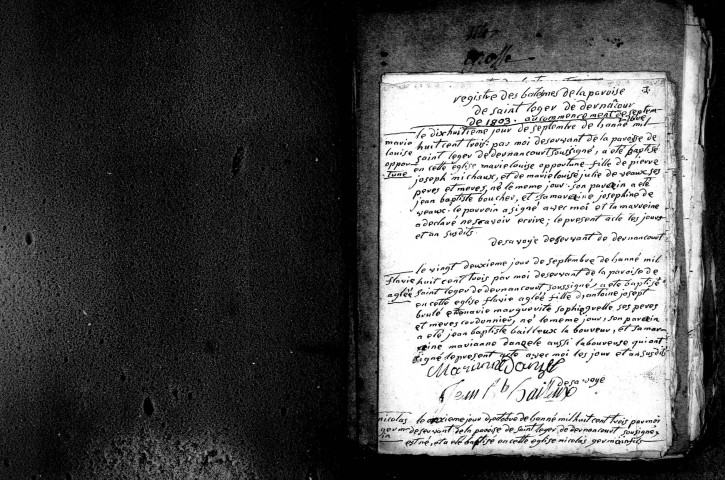 registre des batemes de la paroise
de saint leger de dernancour
de 1803. au commencement de septembre
le dixhuitieme jour de septembre de l'anné mil
marie huit cent trois. par moi deservant de la paroise de
louise saint leger de dernancourt soussigné, a eté baptisé
oppor en cette eglise marie louise opportune fille de pierre
tune joseph michaux, et de marie louise julie de veaux ses
peres et meres, né le meme jour. son parein a eté
jean baptiste boucher, et sa mareine josephine de
veaux. le parein a signé avec moi et la marreine
a declaré ne scavoir ecrire; le present acte les jour
et an susdits.
desavoye deservant de dernancourt
le vingt deuxieme jour de septembre de l'anné mil
flavie huit cent trois par moi deservant de la paroise de
aglée saint leger de dernancourt soussigné, a eté baptisé
en cette eglise flavie aglée fille d'antoine joseph
brulé et marie marguerite sophie ses peres
et meres cordonnier, né le meme jour, son parein
a eté jean baptiste bailleux laboureur, et sa mar
reine marianne dangele aussi laboureuse qui ont
signé le present acte avec moi les jour et an susdits
desavoye
nicolas le jour d'octobre de l'anné mil huit cent trois par moi
germ deservant de la paroise de saint leger de dernancourt soussigné
in est né, et a eté baptisé en cette eglise nicolas germain fils